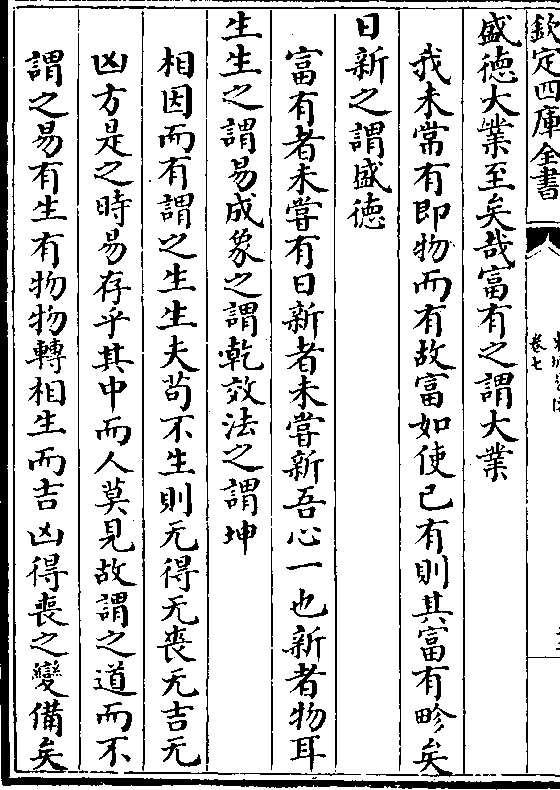 欽定四庫全書
卷七
盛徳大業至矣哉富有之謂大業
我未嘗有即物而有故富如使已有則其富有畛矣
日新之謂盛徳
富有者未嘗有日新者未嘗新吾心一也新者物耳
生生之謂易成象之謂乾效法之謂坤
相因而有謂之生生夫苟不生則无得无喪无吉无
凶方是之時易存乎其中而人莫見故謂之道而不
謂之易有生有物物轉相生而吉凶得喪之變備矣